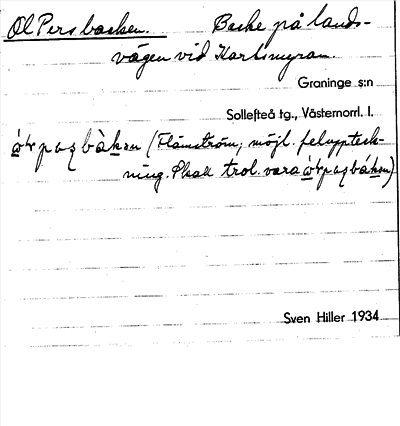 Ol Persbacken. Backe på lands-
vägen vid Karlsmyran.
Graninge s:n
Sollefteå tg., Västernorrl. l.
(Flämström, möjl. feluppteck-
ning. Skall trol. vara
Sven Hiller 1934